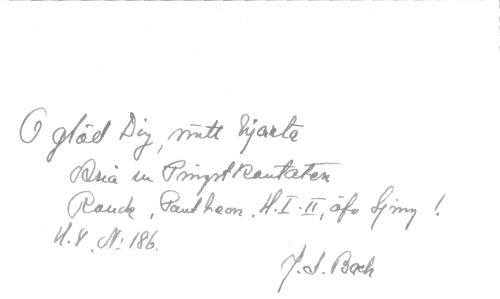 O gläd Dig, mitt hjarta
Aria ur Pingstkantaten
Rauch, Pantheon. H.I-II, äfv
H. 8. No: 186.
J. S. Bach